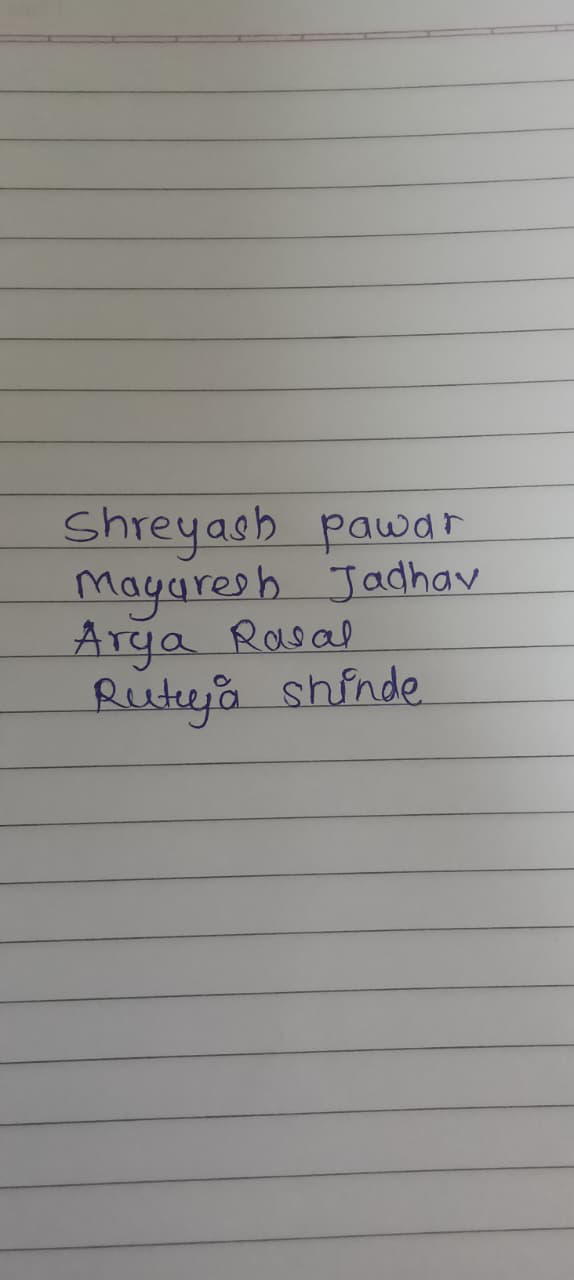 Shreyash pawar
Mayuresh Jadhav
Arya Rasal
Rutuja shinde